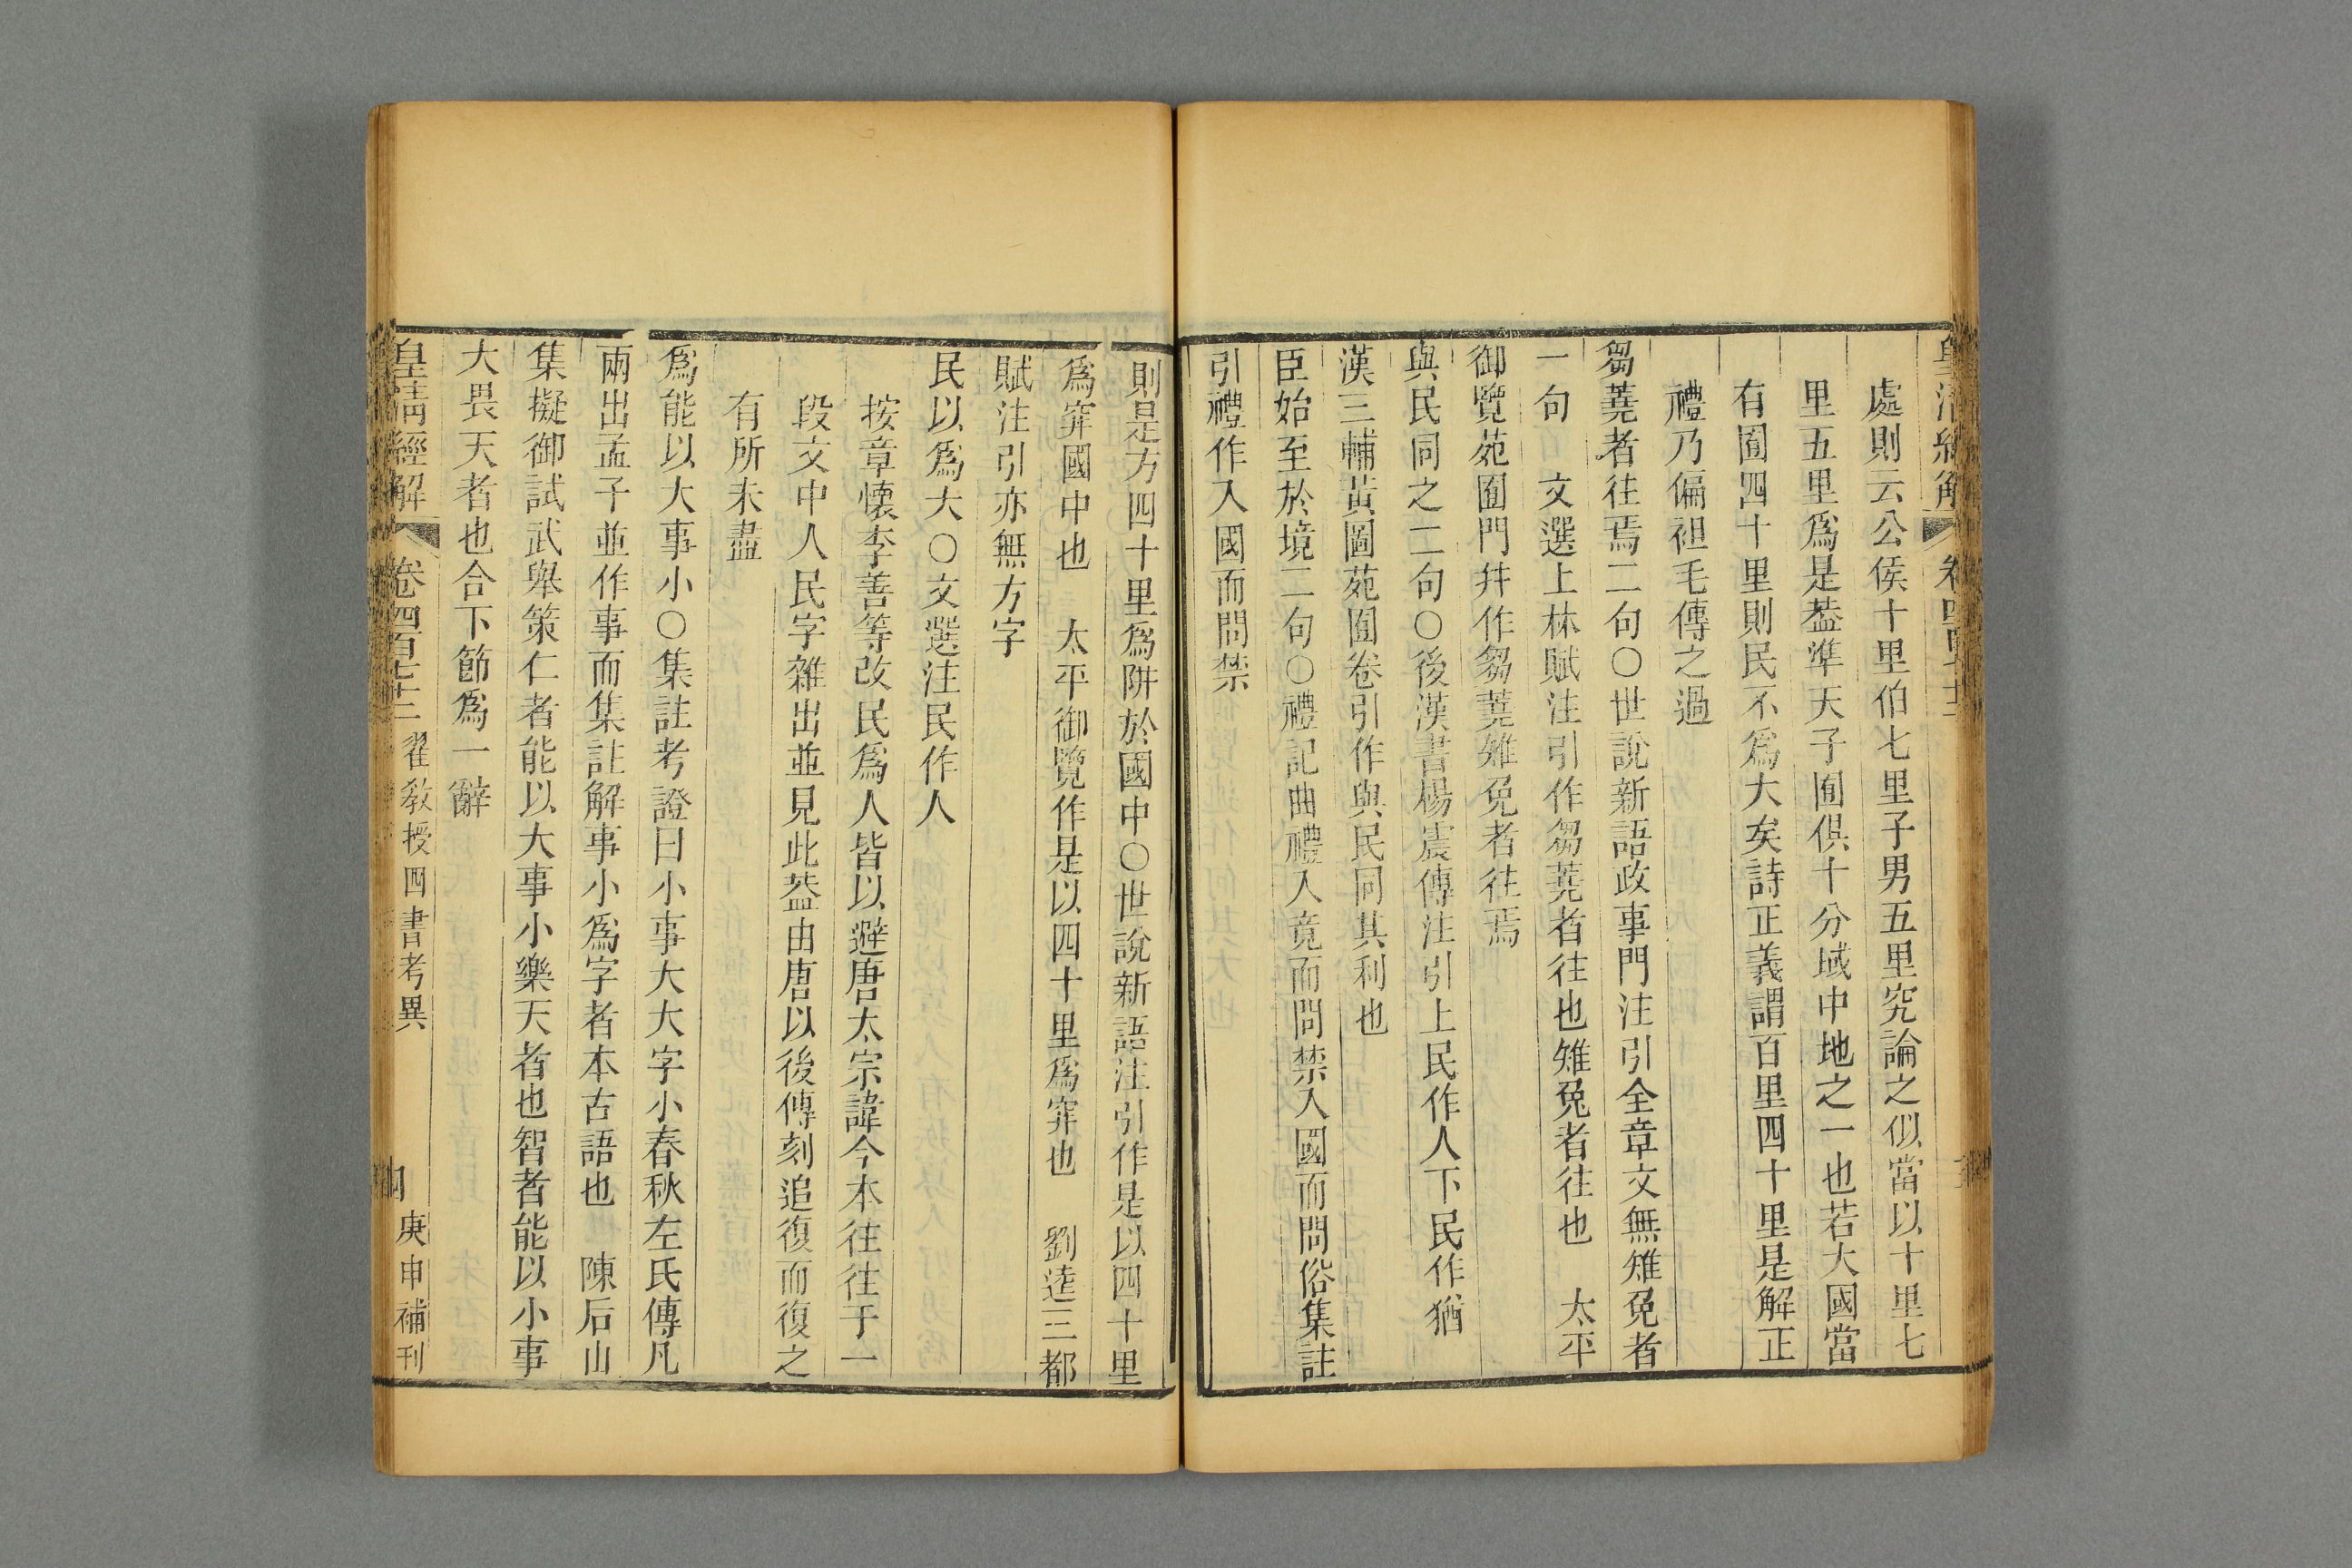 皇清經解 卷四百七十三
處則云公侯十里伯七里子男五里究論之似當以十里七
里五里爲是葢準天子囿俱十分域中地之一也若大國當
有囿四十里則民不爲大矣詩正義謂百里四十里是解正
禮乃偏袒毛傳之過
芻蕘者往焉二句○世說新語政事門注引全章文無雉兔者
一句 文選上林賦注引作芻蕘者往也雉兔者往也 太平
御覽苑囿門幷作芻蕘雉兔者往焉
與民同之二句○後漢書楊震傳注引上民作人下民作猶
漢三輔黃圖苑囿卷引作與民同其利也
臣始至於境二句○禮記曲禮入竟而問禁入國而問俗集註
引禮作入國而問禁
則是方四十里爲阱於國中○世說新語注引作是以四十里
爲穽國中也 太平御覽作是以四十里爲穽也 劉逵三都
賦注引亦無方字
民以爲大○文選注民作人
按章懷李善等改民爲人皆以避唐太宗諱今本往往于一
段文中人民字雜出並見此葢由唐以後傳刻追復而復之
有所未盡
爲能以大事小○集註考證曰小事大大字小春秋左氏傳凡
兩出孟子並作事而集註解事小爲字者本古語也 陳后山
集擬御試武舉策仁者能以大事小樂天者也智者能以小事
大畏天者也合下節爲一辭
皇清經解 卷四百七十三 翟教授四書考異 庚申補刊